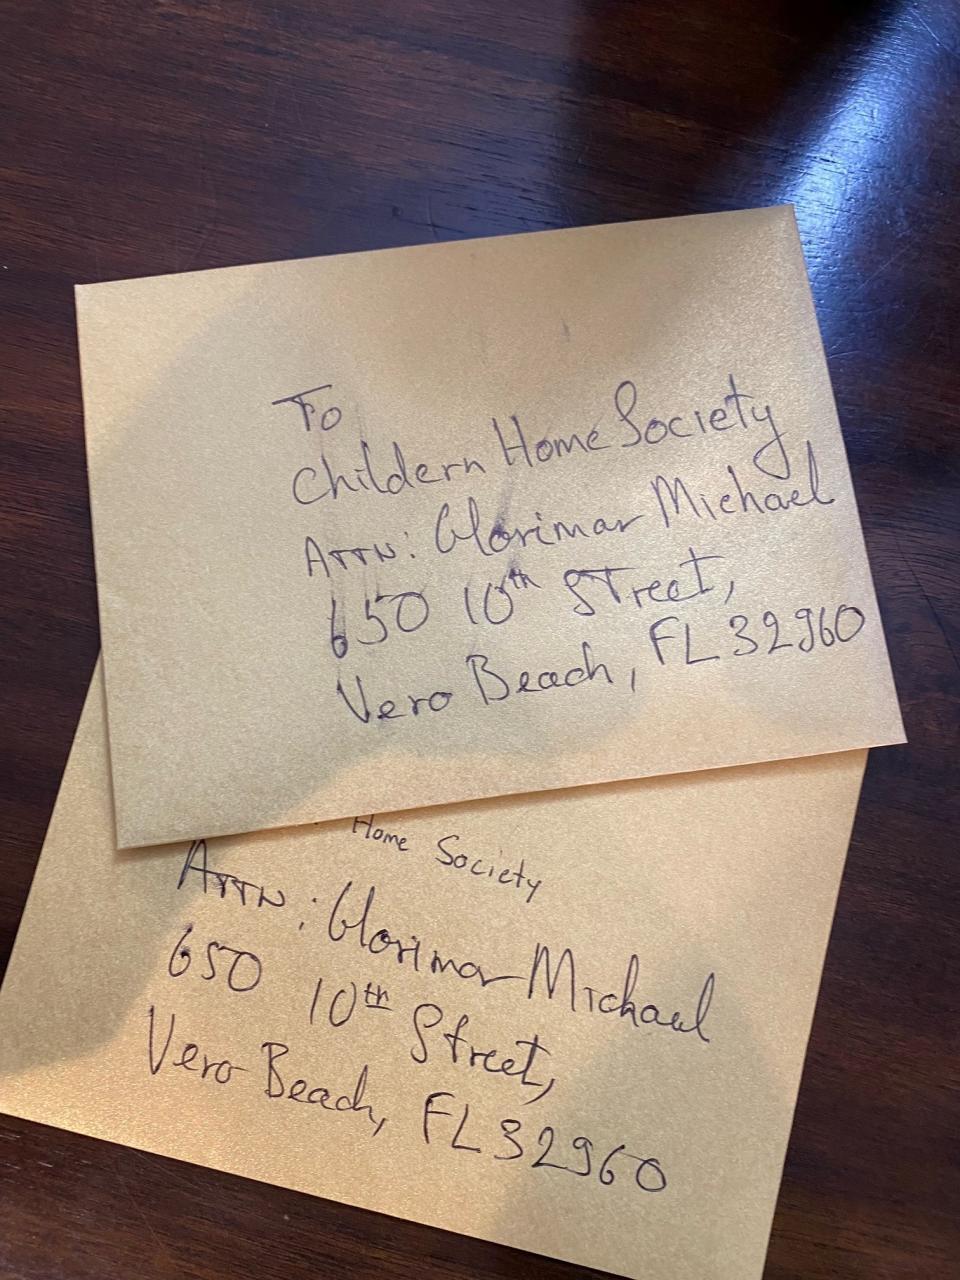 To
Childern Home Society
ATTN: Glorimar Michael
650 10th Street,
Vero Beach, FL 32960
Home Society
ATTN: Glorimar Michael
650 10th Street,
Vero Beach, FL 32960